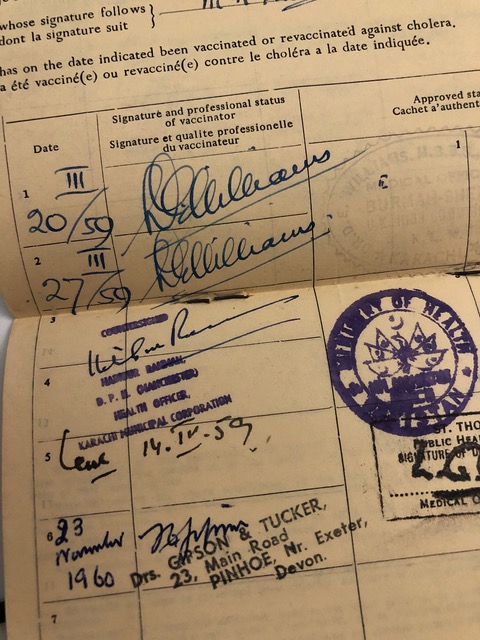 whose signature follows
dont la signature suit
has on the date indicated been vaccinated or revaccinated against cholera.
a été vacciné(e) ou revacciné(e) contre le choléra a la date indiquée.
Date
Signature and professional status
of vaccinator
Signature et qualité professionelle
du vaccinateur
Approved sta
Cachet d'authent
1
1
III
20/59
Williams
WILLIAMS, M.R.
MEDICAL OF
BURMAH-SH
KARACHI
2
III
27/59
Williams
3
COUNTERSIGNED
4
D. P. H. (MANCHESTER)
HEALTH OFFICER,
KARACHI MUNICIPAL CORPORATION
MINISTRY OF HEALTH
5
14.IV.59
ST. THO
PUBLIC HEA
SIGNATURE OF D
MEDICAL O
6
23
November
1960
Drs. GIPSON & TUCKER,
23, Main Road
PINHOE, Nr. Exeter,
Devon.
7